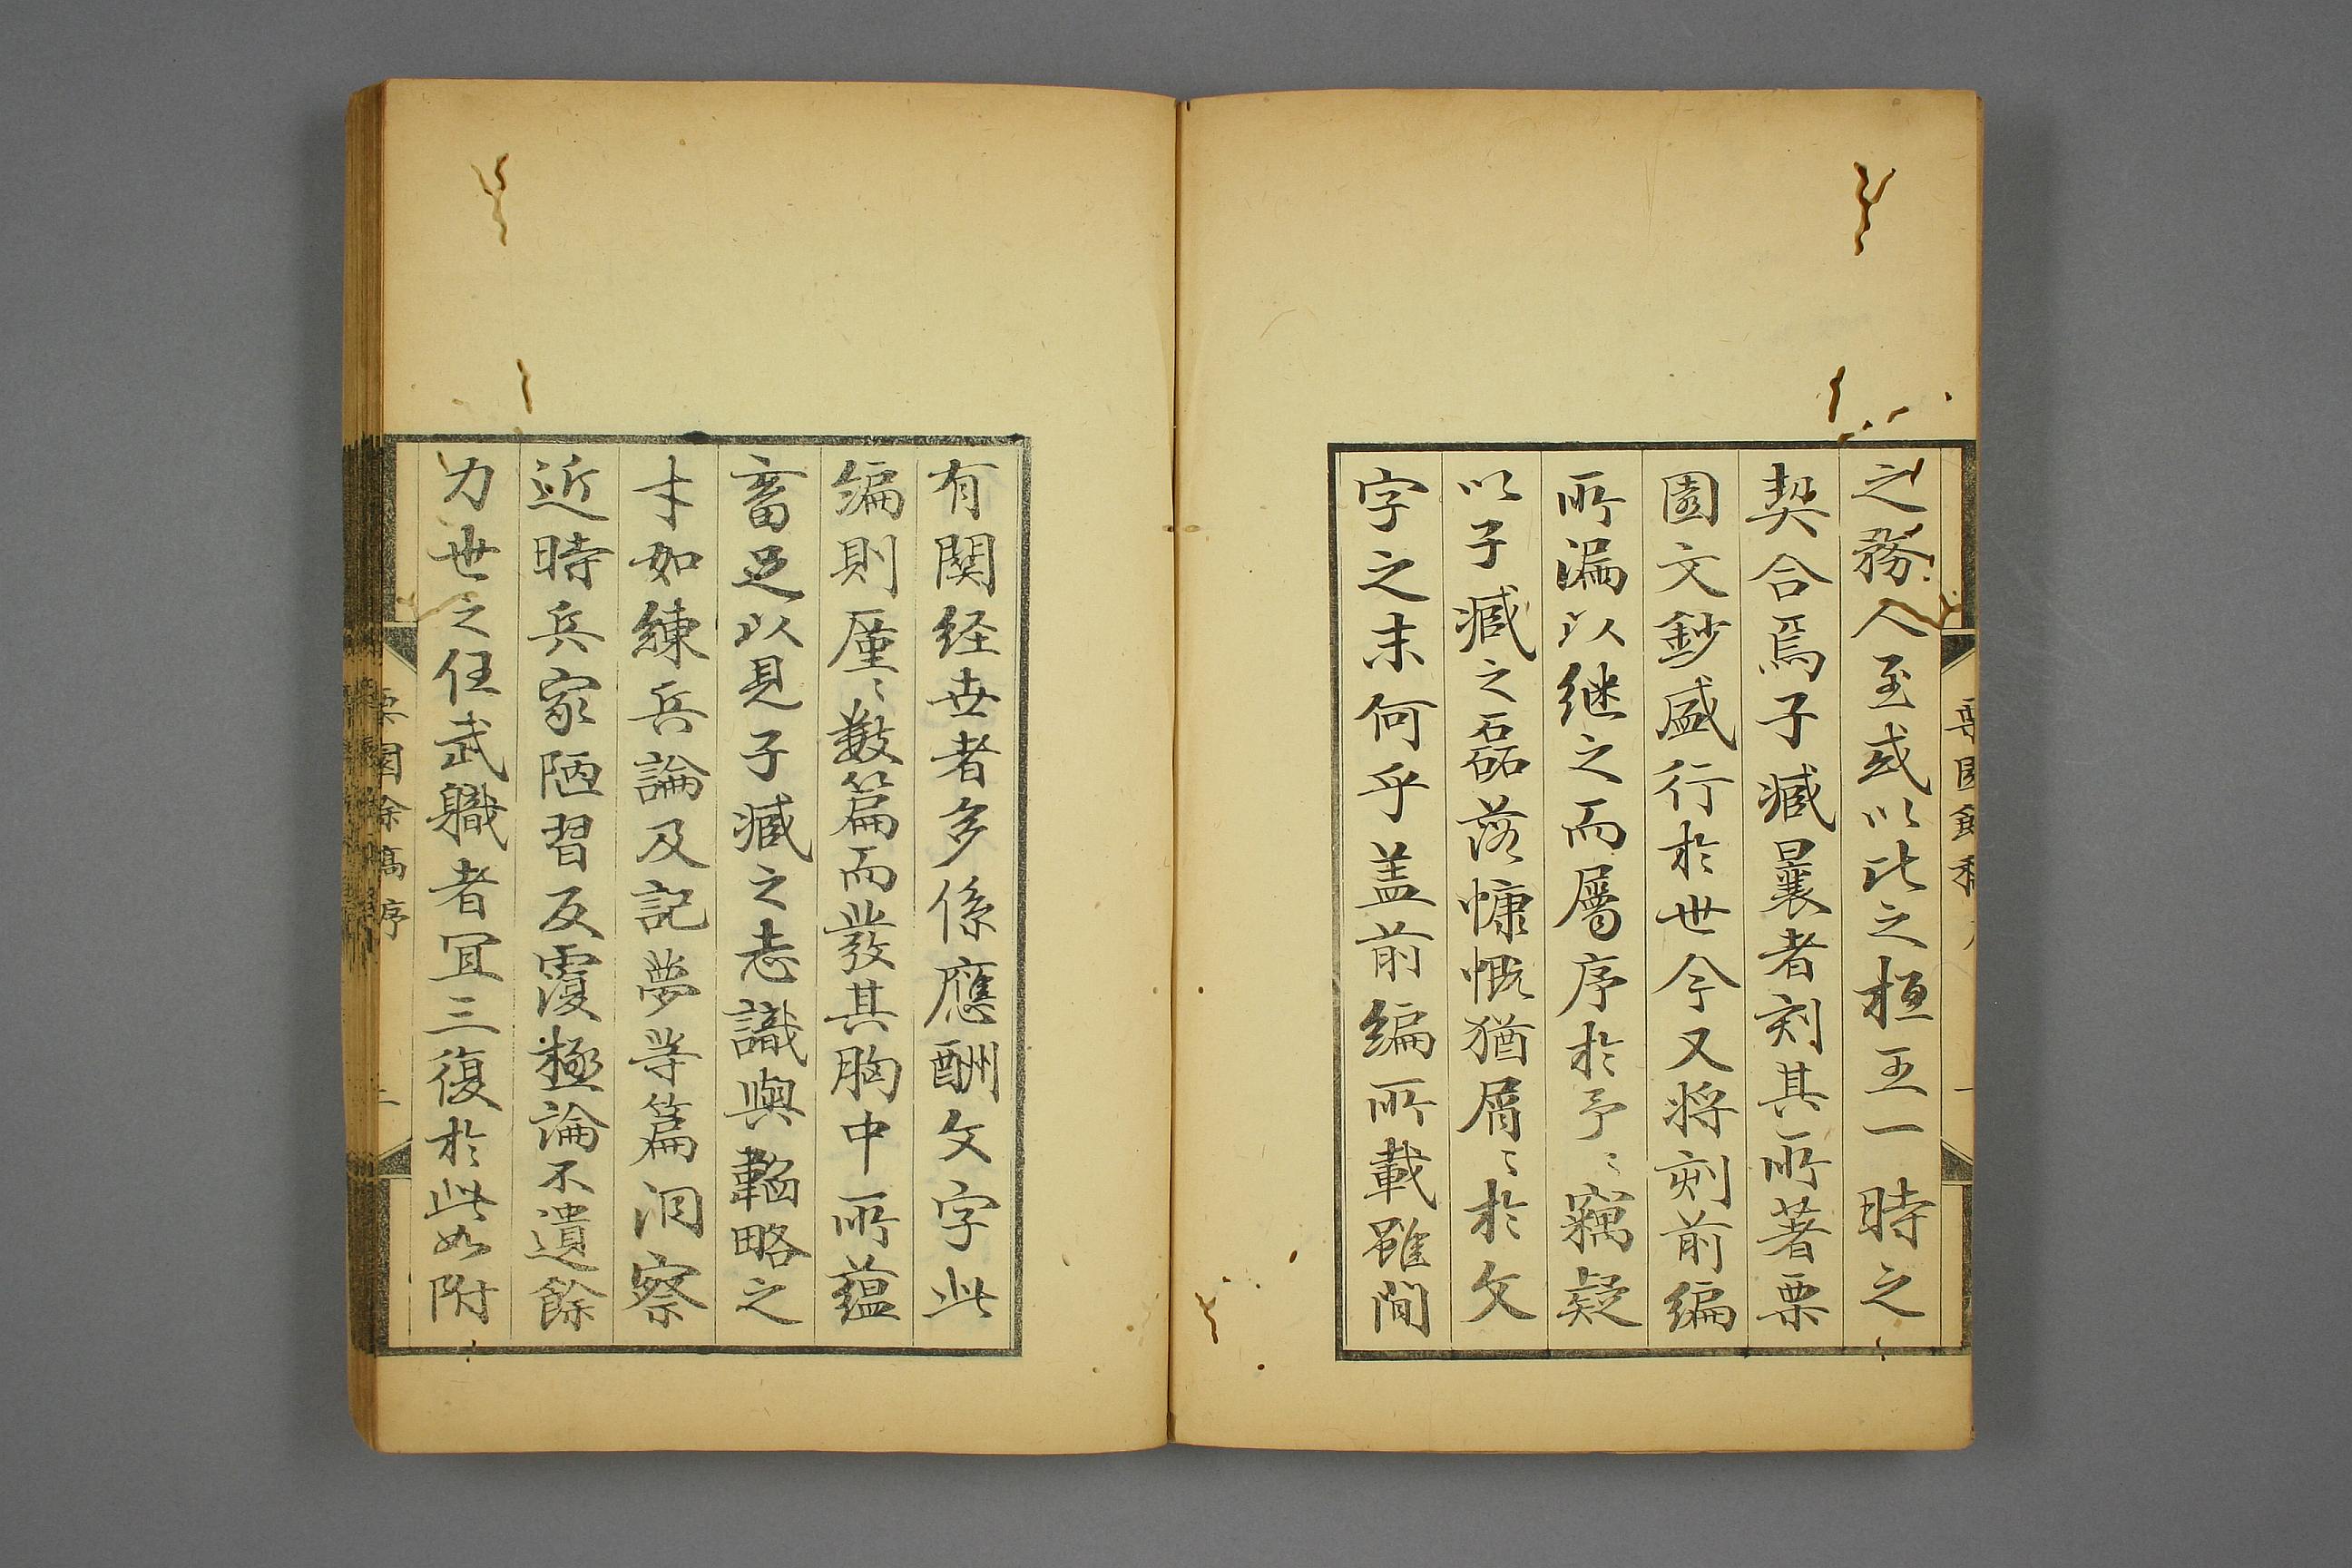 之務入至或以此之桓王一時之
契合焉子臧曩者刻其所著栗
園文鈔盛行於世今又將刻前編
所漏以継之而属序於予〻竊疑
以子臧之磊落慷慨猶屑〻於文
字之末何乎盖前編所載雖間
有関経世者多係應酬文字此
編則厪〻數篇而發其胸中所蘊
畜足以見子臧之志識與韜略之
才如練兵論及記夢等篇洞察
近時兵家陋習反覆極論不遺餘
力世之任武職者宜三復於此如附
栗園餘稿序